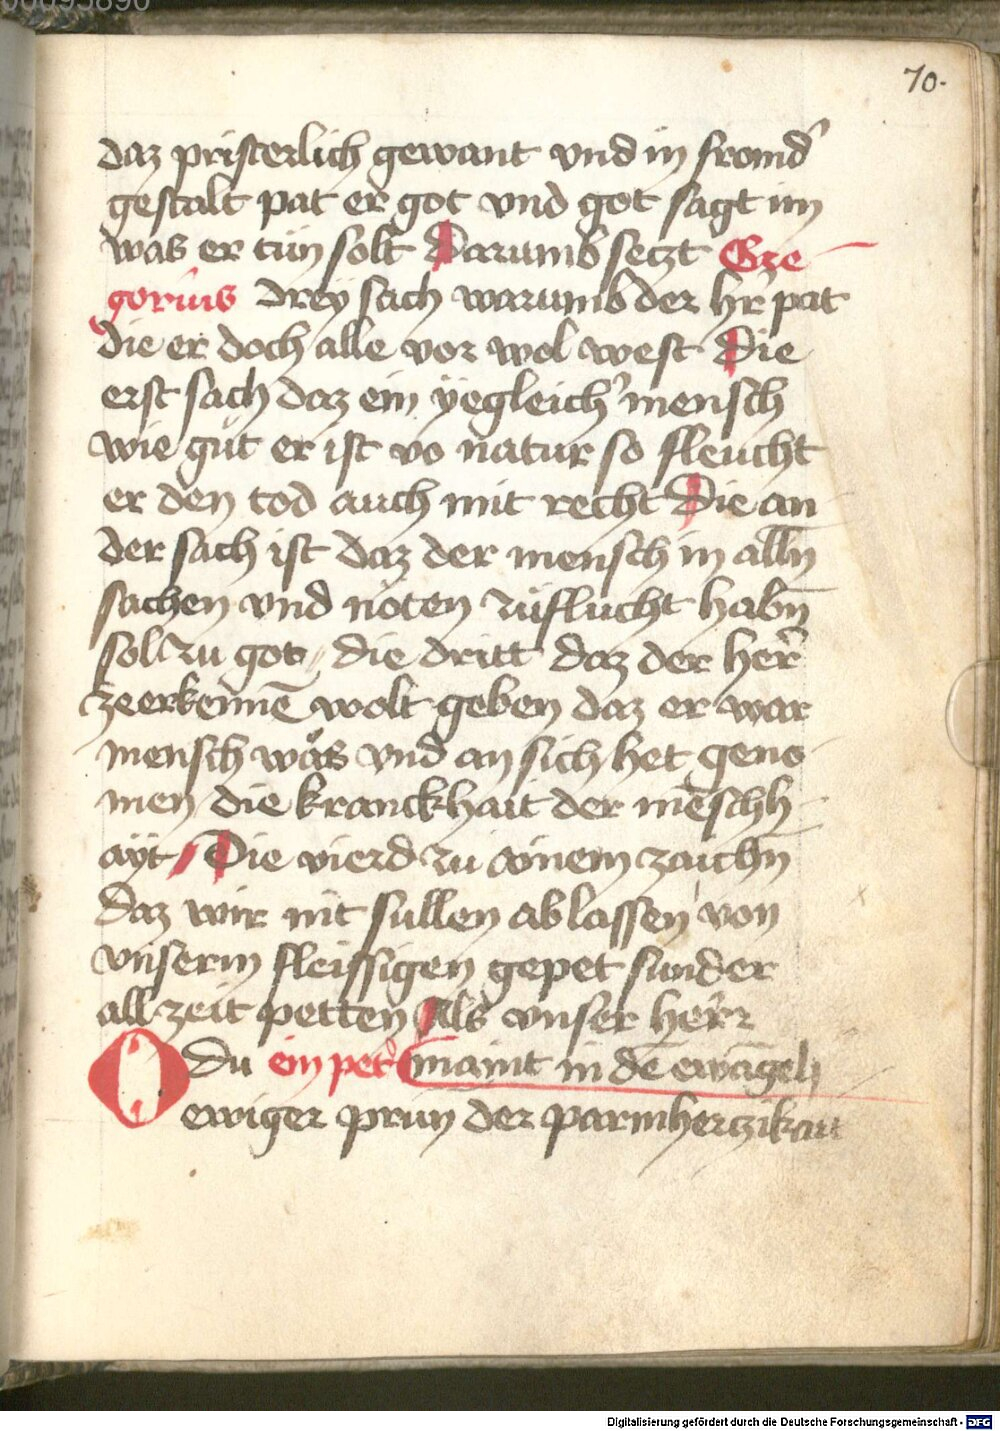 70.
daz pristerlich gewant vnd in fromd'
gestalt pat er got vnd got sagt im
was er tůn solt Darumb setzt Gre
gorius drey sach warumb der hr̄ pat
die er doch alle vor wol west Die
erst sach daz ein yegleich' mensch
wie gůt er ist vo natur so fleucht
er den tod auch mit recht Die an
der sach ist daz der mensch in alln̄
sachen vnd nöten zůflucht habn̄
sol zu got / die dritt daz der her̄
zeerkennē wolt geben daz er war
mensch wås vnd an sich het geno
men die kranckhait der mēschh
ayt / Die vierd zu einem zaichn̄
daz wir nit sullen ablassen von
vnserm fleissigen gepet sunder
all zeit petten Als vnser herr
O du ein pet maint in dē ewāgeli
ewiger prun der parmhertzikait
Digitalisierung gefördert durch die Deutsche Forschungsgemeinschaft - DFG